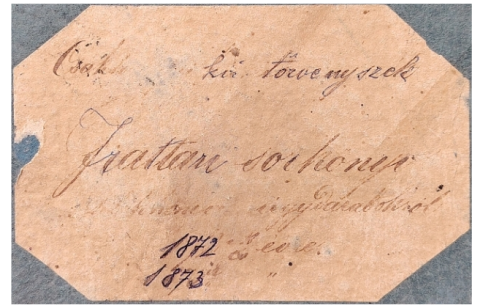 Csák kir. törvényszék
Irattári sorkönyv
ügydarabokról
1872 ik évre.
1873 "